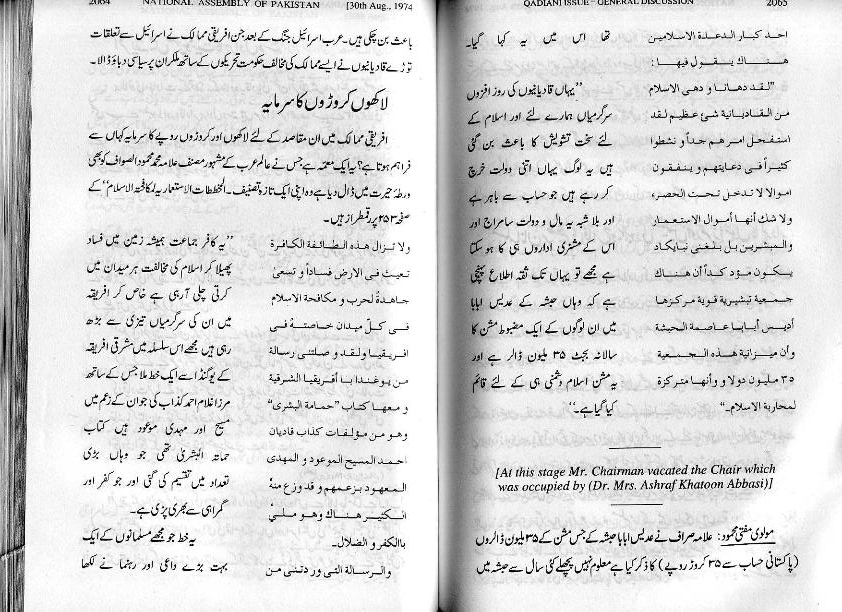 2064 NATIONAL ASSEMBLY OF PAKISTAN [30th Aug., 1974
باعث بن چکی ہیں۔ عرب اسرائیل جنگ کے بعد جن افریقی ممالک نے اسرائیل سے تعلقات
توڑے قادیانیوں نے ایسے ممالک کی مخالف حکومت تحریکوں کے ساتھ مل کر ان پر سیاسی دباؤ ڈالا۔
لاکھوں کروڑوں کا سرمایہ
افریقی ممالک میں ان مقاصد کے لئے لاکھوں اور کروڑوں روپے کا سرمایہ کہاں سے
فراہم ہوتا ہے؟ یہ ایک معمّہ ہے جس نے عالم عرب کے مشہور مصنف علامہ محمد محمود الصواف کو بھی
ورطۂ حیرت میں ڈال دیا ہے وہ اپنی ایک تازہ تصنیف۔ المخططات الاستعماریہ لمکافحۃ الاسلام“ کے
صفحہ ۲۵۳ پر رقمطراز ہیں۔
ولا تزال هذه الطائفة الكافرة
تعيث فى الارض فساداً و تسعىٰ
جاهدةً لحرب و مكافحة الاسلام
فى كلّ ميدان خاصتهً فى
افريقيا ولقد و صلتنى رسالة
من يوغندا با أفريقيا الشرقية
و معها كتاب ”حمامة البشرى“
وهو من مؤلفات كذاب قاديان
احمد المسيح الموعود و المهدى
المعهود بزعمهم و قد وزع منهٗ
الكثير هناك وهو ملىٔ
باالكفر و الضلال۔
والرسالة التى ور دتنى من
”یہ کافر جماعت ہمیشہ زمین میں فساد
پھیلا کر اسلام کی مخالفت ہر میدان میں
کرتی چلی آرہی ہے خاص کر افریقہ
میں ان کی سرگرمیاں تیزی سے بڑھ
رہی ہیں مجھے اس سلسلہ میں مشرقی افریقہ
کے یوگنڈا سے ایک خط ملا جس کے ساتھ
مرزا غلام احمد کذاب کی جو ان کے زعم میں
مسیح اور مہدی موعود ہیں کتاب
حمامتہ البشریٰ تھی جو وہاں بڑی
تعداد میں تقسیم کی گئی اور جو کفر اور
گمراہی سے بھری پڑی ہے۔
یہ خط جو مجھے مسلمانوں کے ایک
بہت بڑے داعی اور رہنما نے لکھا
QADIANI ISSUE – GENERAL DISCUSSION 2065
احد كبار الدعدة الاسلاميين
هناك يقول فيها:
”لقد دهانا و دهى الاسلام
من القاديانية شئ عظيم لقد
استفحل امر هم جداً و نشطوا
كثيراً فى دعايتهم و ينفقون
اموالا لا تدخل تحت الحصر،
ولا شك أنها أموال الاستعمار
والمبشرين بل بلغنى نبايكاد
يكون مؤد كداً أن هناك
جمعية تبشيرية قوية مركزها
أديس أبابا عاصمة الحبشة
وأن ميزانية هذه الجمعية
۳۵ مليون دولا و وأنها متركزة
لمحاربة الاسلام۔“
تھا اس میں یہ کہا گیا۔
”یہاں قادیانیوں کی روز افزوں
سرگرمیاں ہمارے لئے اور اسلام کے
لئے سخت تشویش کا باعث بن گئی
ہیں یہ لوگ یہاں اتنی دولت خرچ
کر رہے ہیں جو حساب سے باہر ہے
اور بلا شبہ یہ مال و دولت سامراج اور
اس کے مشنری اداروں ہی کا ہو سکتا
ہے مجھے تو یہاں تک ثقہ اطلاع پہنچی
ہے کہ وہاں حبشہ کے عدیس ابابا
میں ان لوگوں کے ایک مضبوط مشن کا
سالانہ بجٹ ۳۵ ملین ڈالر ہے اور
یہ مشن اسلام دشمنی ہی کے لئے قائم
کیا گیا ہے۔“
[At this stage Mr. Chairman vacated the Chair which
was occupied by (Dr. Mrs. Ashraf Khatoon Abbasi)]
مولوی مفتی محمود: علامہ صراف نے عدیس ابابا حبشہ کے جس مشن کے ۳۵ ملین ڈالروں
(پاکستانی حساب سے ۳۵ کروڑ روپے) کا ذکر کیا ہے معلوم نہیں پچھلے کئی سال سے حبشہ میں